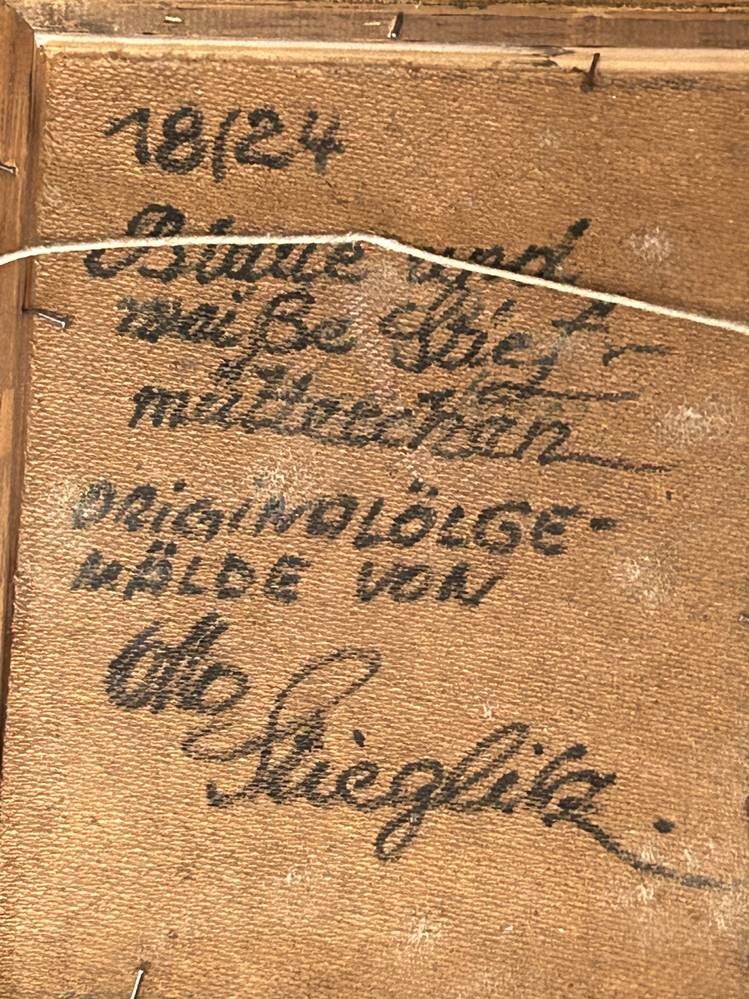 18/24
Blaue und
weiße Stief-
mütterchen
ORIGINALÖLGE-
MÄLDE VON
Otto
Stieglitz.